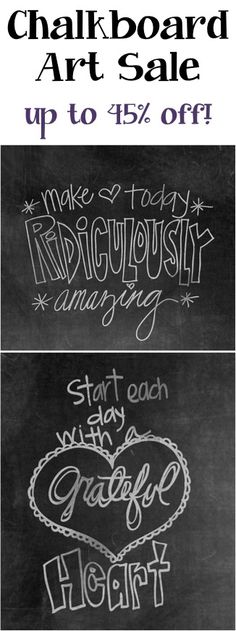 Chalkboard
Art Sale
up to 45% off!
make ♡ today
RIDICULOUSLY
* amazing *
Start each
day
with a
Grateful
Heart